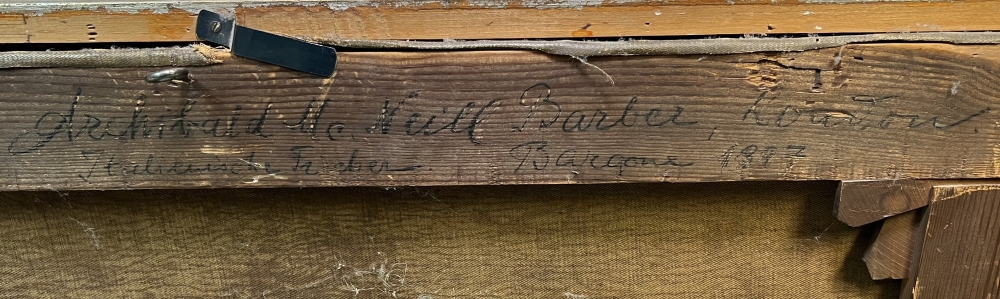 Archibald Mc. Neill Barber, London.
Italienische Fischer. Bargone 1887